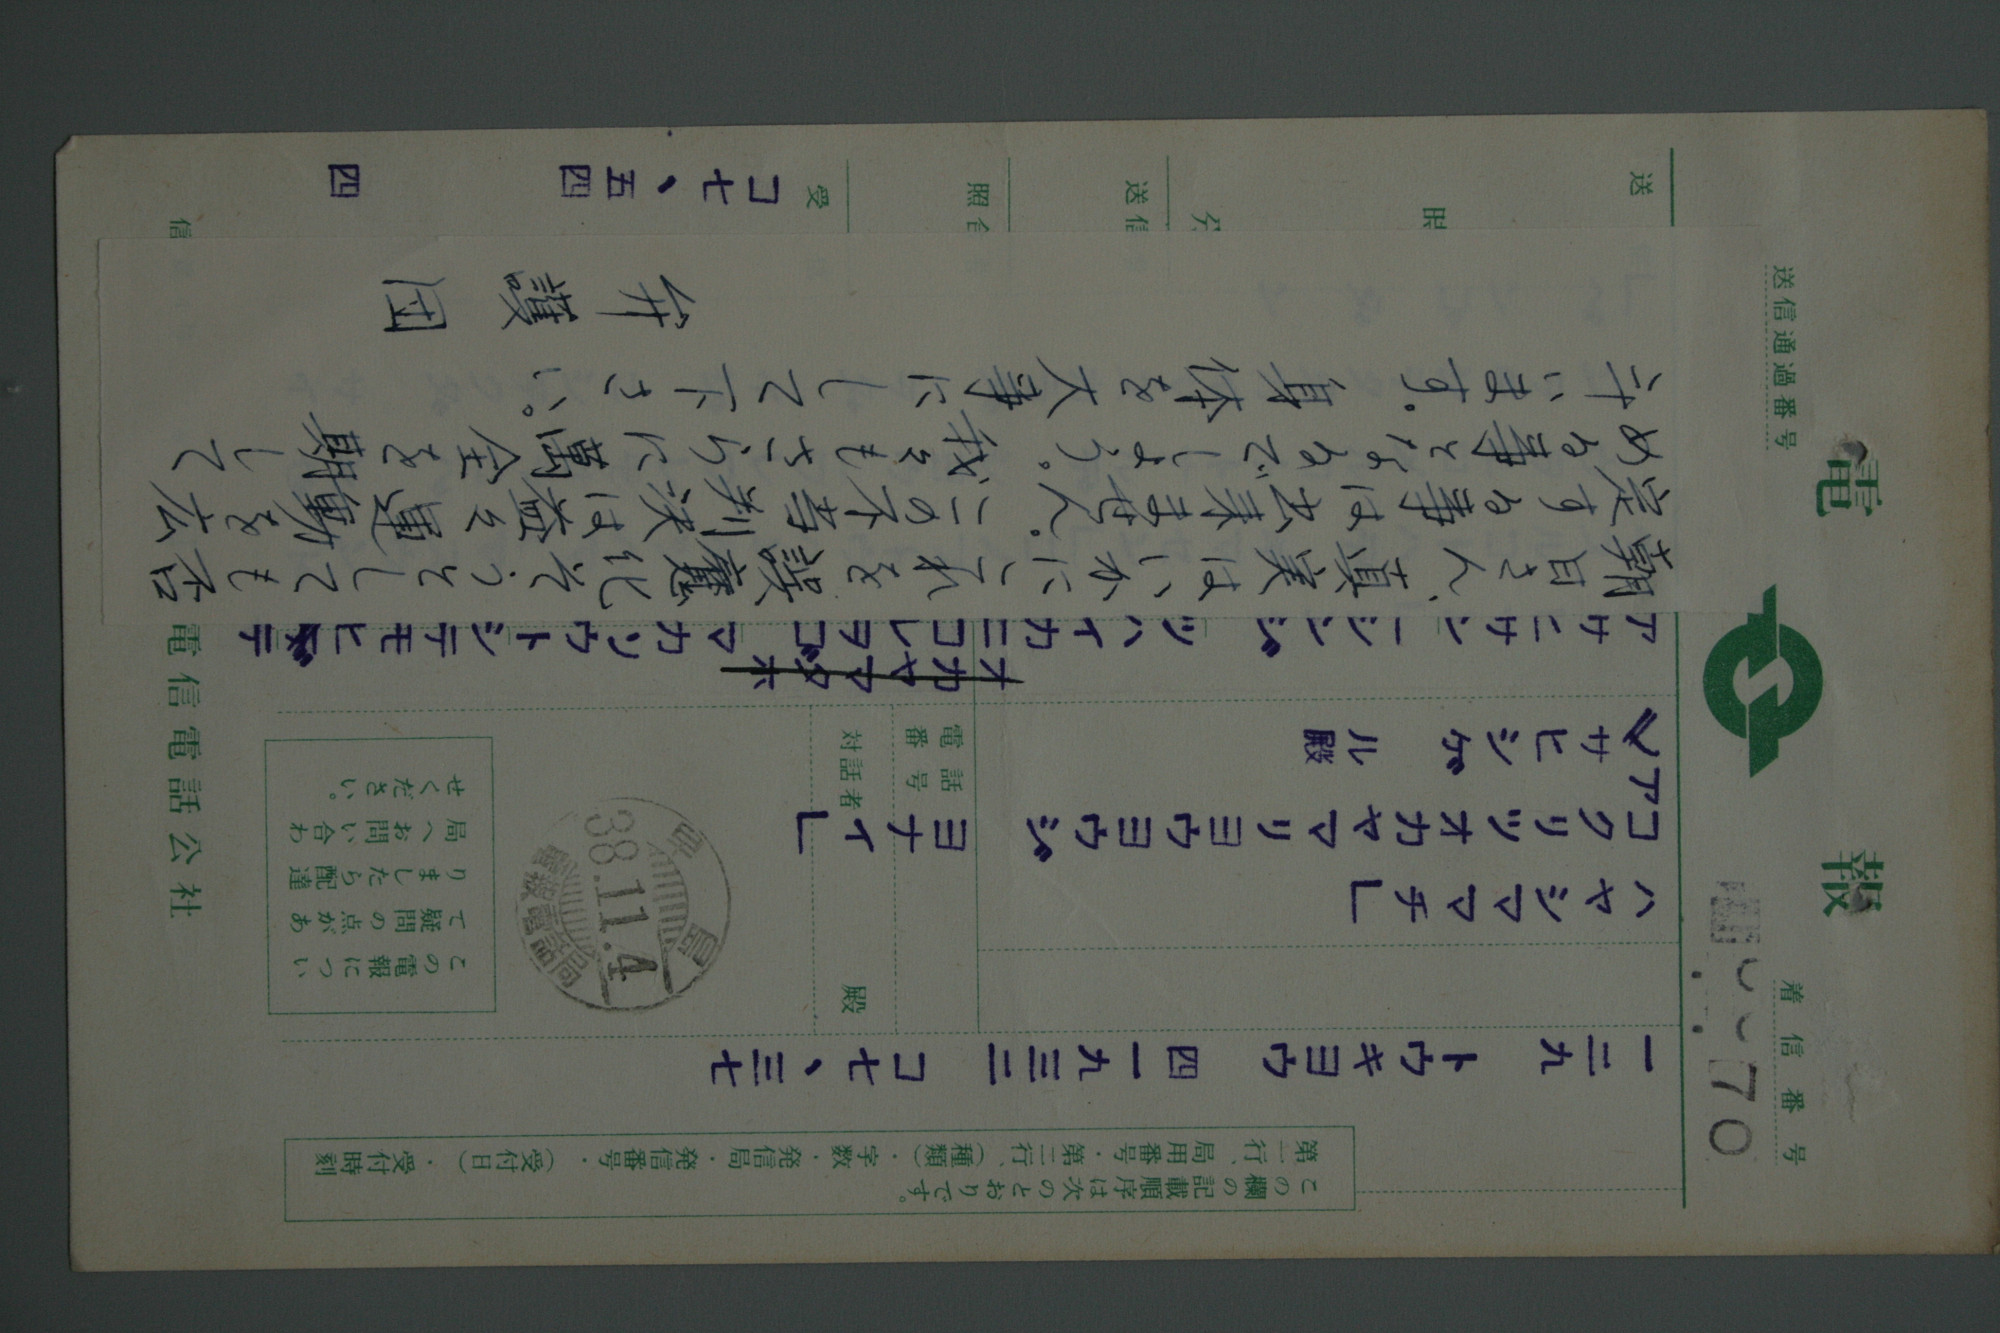 電報
着信番号
70
送信通過番号
この欄の記載順序は次のとおりです。
第一行、局用番号・第二行、(種類)・字数・発信局・発信番号・(受付日)・受付時刻
一二九 トウキヨウ 四一九三二 コ七、三七
ハヤシママチ」
コクリツオカヤマリヨウヨウジ ヨナイ」
アサヒシゲル殿
電話番号
対話者
殿
38.11.4
この電報につい
て疑問の点があ
りましたら配達
局へお問い合わ
せください。
オカヤマダホ
アサニサンーシンジツハイカニコレヲゴマカソウトシテモヒテ
朝日さん、真実はいかにこれを誤魔化そうとしても否
定する事は出来ません。この不当判決は益々運動を広
める事となるでしょう。我々もさらに萬全を期して
斗います。身体を大事にして下さい。
弁護団
送
送信
照会
受信
コ七、五四 四
電信電話公社